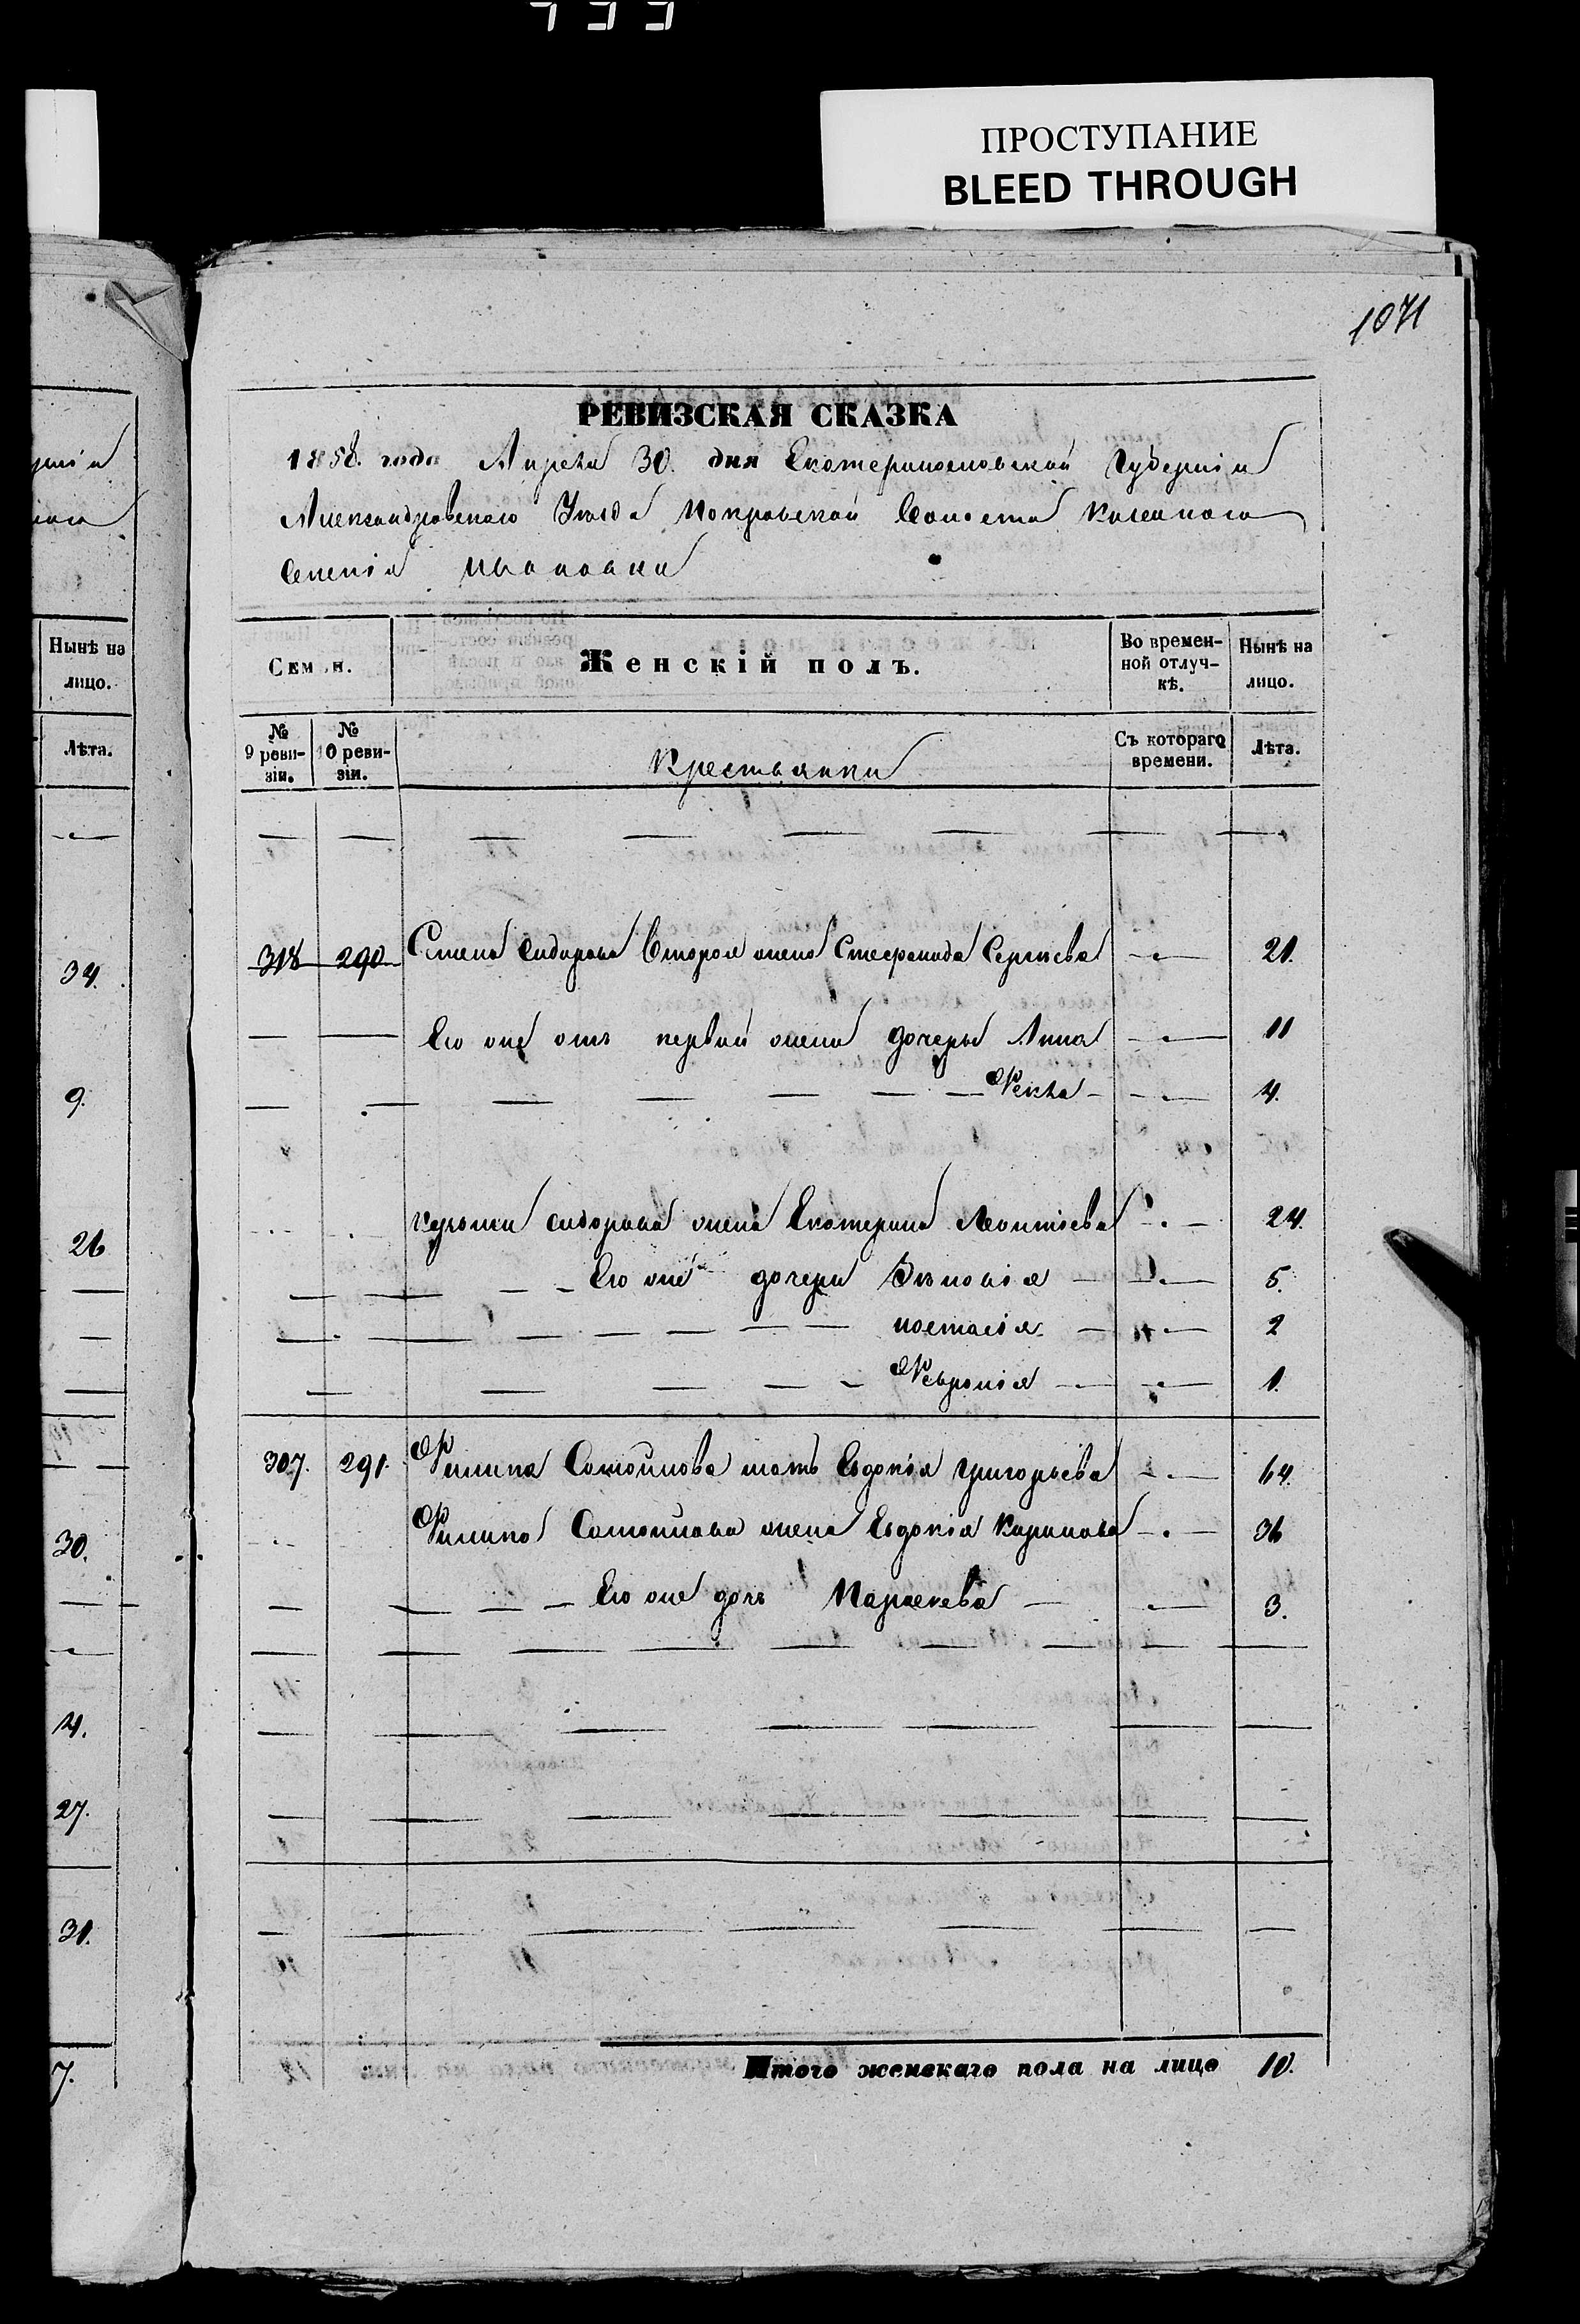 ПРОСТУПАНИЕ
BLEED THROUGH
1071
РЕВИЗСКАЯ СКАЗКА
1858. года Апреля 30. дня Екатеринославской Губернiи
Александровскаго Уѣзда Покровской Волости Казеннаго
Селенiя
Семьи. Женскiй полъ. Во времен-ной отлуч-кѣ. Нынѣ на лицо.
№ 9 реви-зiи. № 10 реви-зiи. Крестьянки Съ котораго времени. Лѣта.
318 290 Сидорова Вторая жена Стефанида Сергѣева 21.
Его же отъ первой жены дочери Анна 11
Фекла 4.
Кузьмы Сидорова жена Екатерина Леонтiева 24.
Его же дочери Зѣновiя 5.
Настасiя 2
Февронiя 1.
307. 291. Филипа Самойлова мать Евдокiя Григорьева 64.
Филипа Самойлова жена Евдокiя Карпова 36
Его же дочь Параскева 3.
Итого женскаго пола на лицо 10.
Нынѣ на лицо.
Лѣта.
34.
9.
26
30.
4.
27.
31.
7.